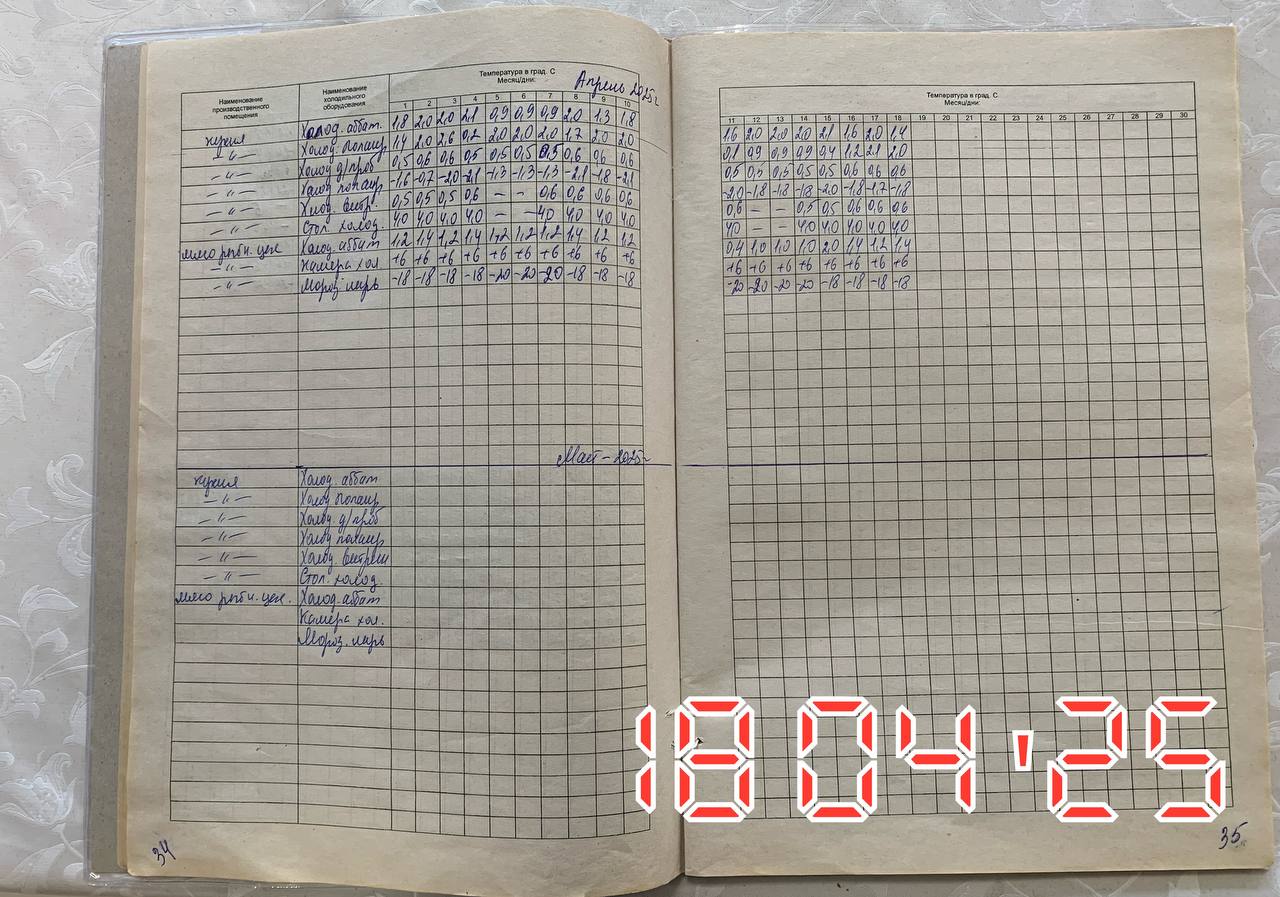 Температура в град. С
Месяц/дни:
Апрель 2025г
Наименование производственного помещения
Наименование холодильного оборудования
1 2 3 4 5 6 7 8 9 10
кухня Холод. аббат. 1,8 2,0 2,0 2,1 0,9 0,9 0,9 2,0 1,3 1,8
—"— Холод. 1,4 2,0 2,6 0,2 2,0 2,0 2,0 1,7 2,0 2,0
—"— Холод д/проб 0,5 0,6 0,6 0,5 0,5 0,5 0,5 0,6 0,6 0,6
—"— Холод -1,6 -0,7 -2,0 -2,1 -1,3 -1,3 -1,3 -2,1 -1,8 -2,1
—"— Холод. витр. 0,5 0,5 0,5 0,6 — — 0,6 0,6 0,6 0,6
—"— Стол холод. 4,0 4,0 4,0 4,0 — — 4,0 4,0 4,0 4,0
мясо рыбн. цех Холод. аббат 1,2 1,4 1,2 1,4 1,2 1,2 1,2 1,4 1,2 1,2
—"— Камера хол +6 +6 +6 +6 +6 +6 +6 +6 +6 +6
—"— Мороз. ларь -18 -18 -18 -18 -20 -20 -20 -18 -18 -18
Май - 2025г
кухня Холод. аббат
—"— Холод
—"— Холод. д/проб
—"— Холод
—"— Холод. витрин
—"— Стол. холод.
мясо рыбн. цех. Холод. аббат
Камера хол.
Мороз. ларь
34
Температура в град. С
Месяц/дни:
11 12 13 14 15 16 17 18 19 20 21 22 23 24 25 26 27 28 29 30
1,6 2,0 2,0 2,0 2,1 1,6 2,0 1,4
0,1 0,9 0,9 0,9 0,4 1,2 2,1 2,0
0,5 0,5 0,5 0,5 0,5 0,6 0,6 0,6
-2,0 -1,8 -1,8 -1,8 -2,0 -1,8 -1,7 -1,8
0,6 — — 0,5 0,5 0,6 0,6 0,6
4,0 — — 4,0 4,0 4,0 4,0 4,0
0,4 1,0 1,0 1,0 2,0 1,4 1,2 1,4
+6 +6 +6 +6 +6 +6 +6 +6
-20 -20 -20 -20 -18 -18 -18 -18
18 04 '25
35